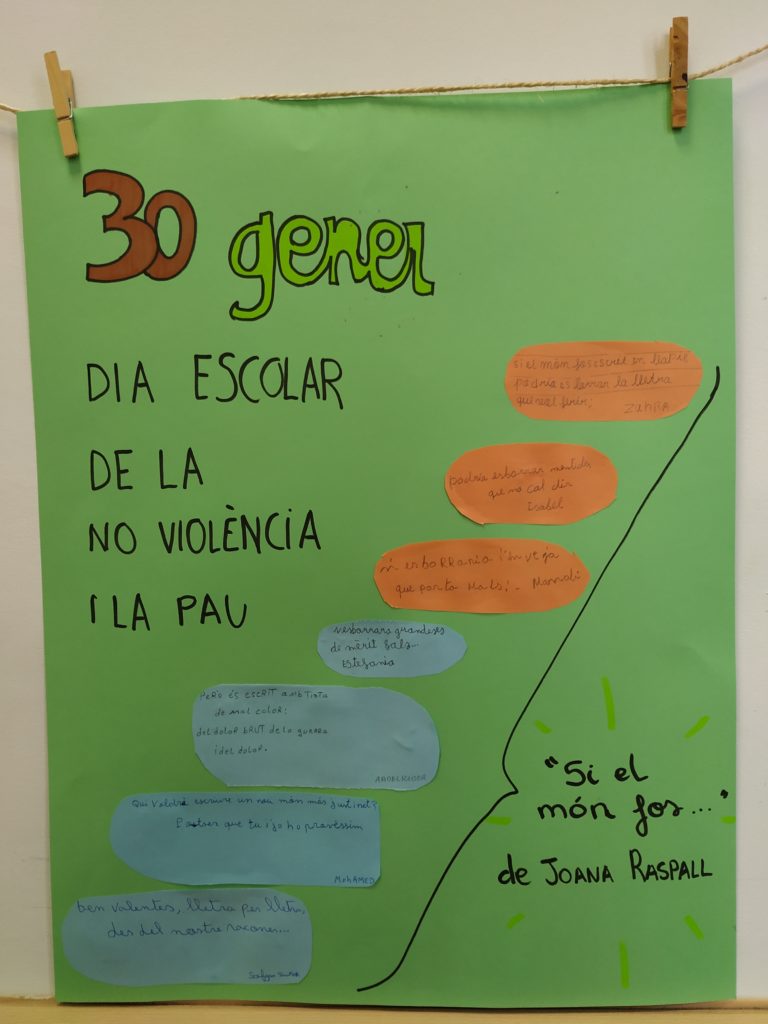 30 gener
DIA ESCOLAR
DE LA
NO VIOLÈNCIA
I LA PAU
si el món fos escrit en llapis
podria esborrar la lletra
que
ZAHRA
podria esborrar mentides
que no cal dir
Isabel
n'esborraria l'enveja
que porta mals!.
n'esborrara grandeses
de mèrit fals...
Estefania
PERO éS ESCRIT AMB TINTA
de mal color:
del color BRUT de la guerra
i del dolor.
ABDELKADER
Qui voldrà escriure un nou món més just i net?
Potser que tu i jo ho provéssim
MOHAMED
ben valentes, lletra per lletra,
des del nostre raconet...
"Si el
món fos..."
de JOANA RASPALL